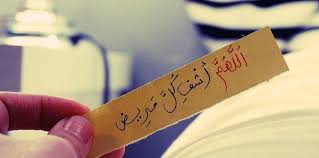 اللَّهُمَّ أشفِ كُلَّ مَريض